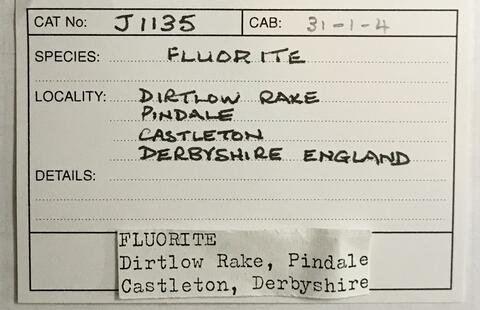 CAT No: J1135 CAB: 31-1-4
SPECIES: FLUORITE
LOCALITY: DIRTLOW RAKE
PINDALE
CASTLETON
DERBYSHIRE ENGLAND
DETAILS:
FLUORITE
Dirtlow Rake, Pindale
Castleton, Derbyshire